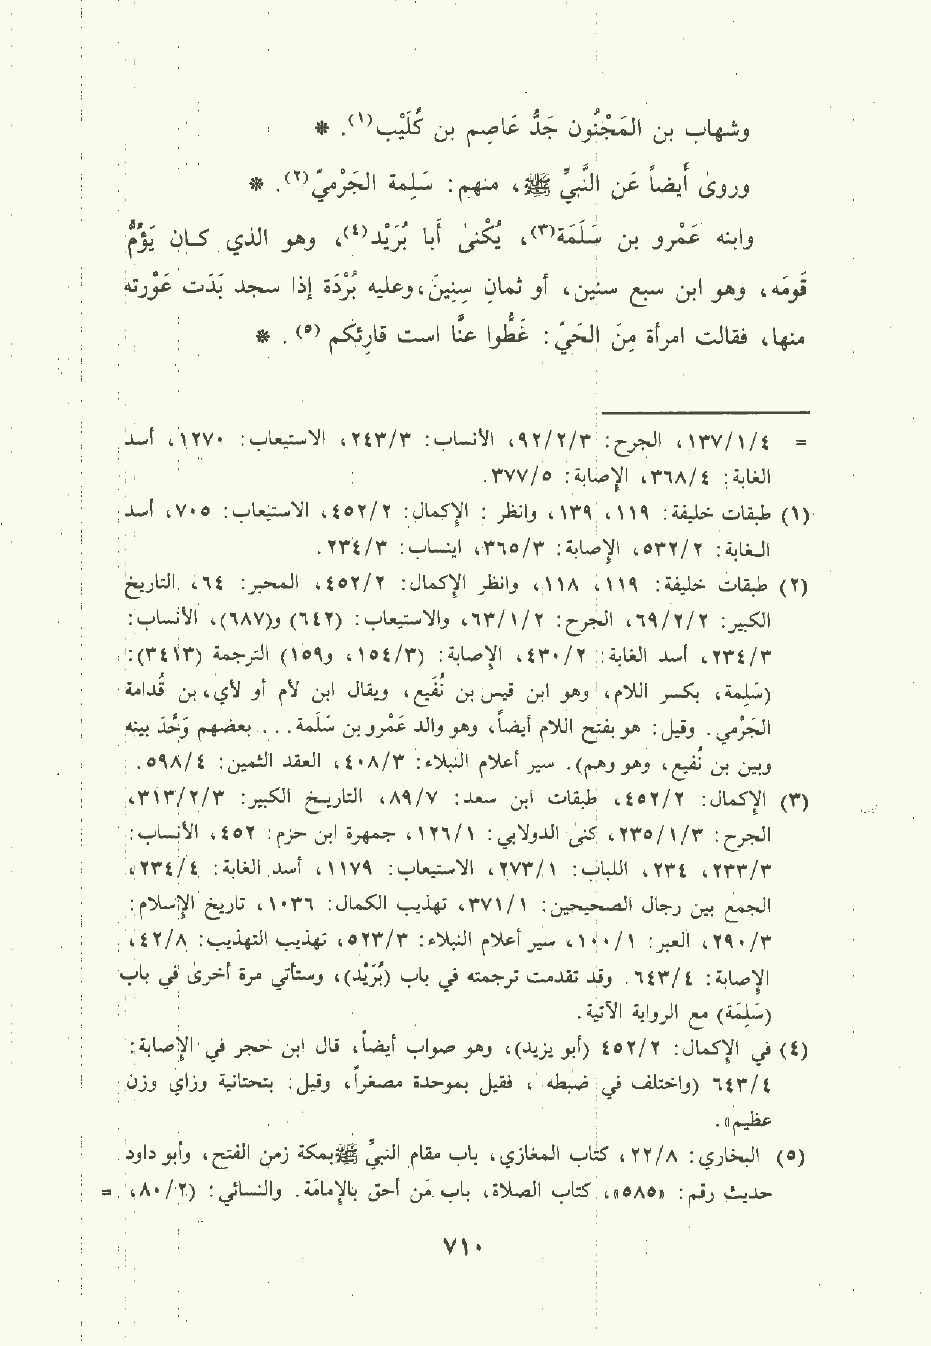 وشهاب بن المَجْنُون جَدُّ عَاصِم بن كُلَيْب(١). *
وروىٰ أيضاً عَن النَّبيِّ ﷺ، منهم: سَلِمة الجَرْميّ(٢). *
وابنه عَمْرو بن سَلَمَة(٣)، يُكْنىٰ أبا بُرَيْد(٤)، وهو الذي كان يَؤُمُّ
قَومَه، وهو ابن سبع سنين، أو ثمانِ سِنِينَ، وعليه بُرْدَة إذا سجد بَدَت عَوْرته
منها، فقالت امرأة مِنَ الحَيّ: غَطُّوا عنَّا است قارِئِكم(٥). *
= ١٣٧/١/٤، الجرح: ٩٢/٢/٣، الأنساب: ٢٤٣/٣، الاستيعاب: ١٢٧٠، أسد
الغابة: ٣٦٨/٤، الإصابة: ٣٧٧/٥.
(١) طبقات خليفة: ١١٩، ١٣٩، وانظر: الإكمال: ٤٥٢/٢، الاستيعاب: ٧٠٥، أسد
الغابة: ٥٣٢/٢، الإصابة: ٣٦٥/٣، اينساب: ٢٣٤/٣.
(٢) طبقات خليفة: ١١٩، ١١٨، وانظر الإكمال: ٤٥٢/٢، المحبر: ٦٤، التاريخ
الكبير: ٦٩/٢/٢، الجرح: ٦٣/١/٢، والاستيعاب: (٦٤٢) و(٦٨٧)، الأنساب:
٢٣٤/٣، أسد الغابة: ٤٣٠/٢، الإصابة: (١٥٤/٣، و١٥٩) الترجمة (٣٤١٣):
(سَلِمة، بكسر اللام، وهو ابن قيس بن نُفَيع، ويقال ابن لأم أو لأي، بن قُدامة
الجَرْمي. وقيل: هو بفتح اللام أيضاً، وهو والد عَمْرو بن سَلَمة... بعضهم وَحَّدَ بينه
وبين بن نُفيع، وهو وهم). سير أعلام النبلاء: ٤٠٨/٣، العقد الثمين: ٥٩٨/٤.
(٣) الإكمال: ٤٥٢/٢، طبقات ابن سعد: ٨٩/٧، التاريخ الكبير: ٣١٣/٢/٣،
الجرح: ٢٣٥/١/٣، كنىٰ الدولابي: ١٢٦/١، جمهرة ابن حزم: ٤٥٢، الأنساب:
٢٣٣/٣، ٢٣٤، اللباب: ٢٧٣/١، الاستيعاب: ١١٧٩، أسد الغابة: ٢٣٤/٤،
الجمع بين رجال الصحيحين: ٣٧١/١، تهذيب الكمال: ١٠٣٦، تاريخ الإسلام:
٢٩٠/٣، العبر: ١٠٠/١، سير أعلام النبلاء: ٥٢٣/٣، تهذيب التهذيب: ٤٢/٨،
الإصابة: ٦٤٣/٤. وقد تقدمت ترجمته في باب (بُرَيْد)، وستأتي مرة أخرىٰ في باب
(سَلِمَة) مع الرواية الآتية.
(٤) في الإكمال: ٤٥٢/٢ (أبو يزيد)، وهو صواب أيضاً، قال ابن حجر في الإصابة:
٦٤٣/٤ (واختلف في ضبطه، فقيل بموحدة مصغراً، وقيل: بتحتانية وزاي وزن
عظيم».
(٥) البخاري: ٢٢/٨، كتاب المغازي، باب مقام النبيِّ ﷺ بمكة زمن الفتح، وأبو داود
حديث رقم: «٥٨٥»، كتاب الصلاة، باب من أحق بالإمامة. والنسائي: (٨٠/٢، =
٧١٠